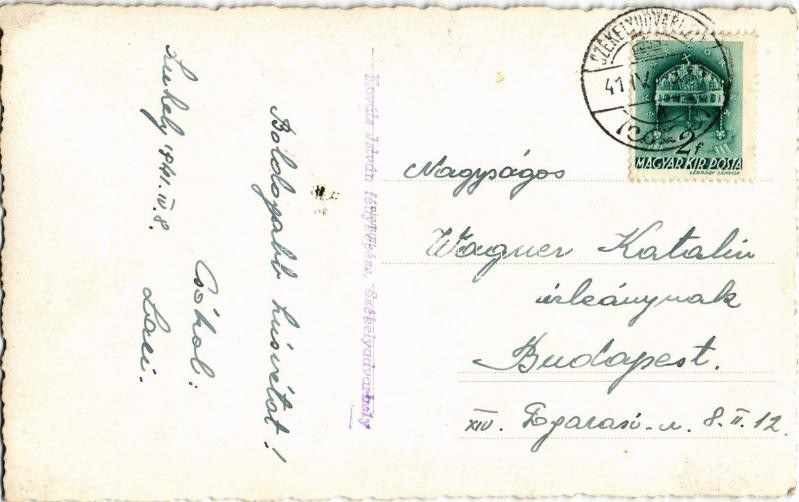 Zuhely 1941. IV. 8.
Boldogabb húsvétot!
Csókol:
Laci.
Kováts István fényképész, Székelyudvarhely
SZÉKELYUDVARHELY
41. IV.
2f
MAGYAR KIR. POSTA
LÉGRÁDY SÁNDOR
Nagyságos
Wagner Katalin
úrleánynak
Budapest.
XIV. Egarasi-u. 8. II. 12.